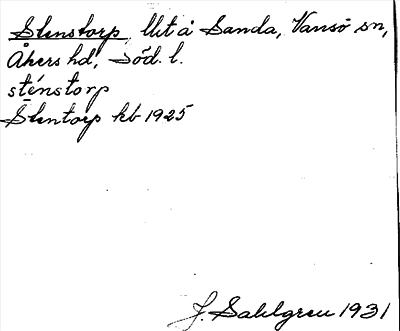 Stenstorp Utå Sanda, Vansö sn,
Åkers hd, Söd. l.
sténstorp
Stentorp kb 1925
J. Sahlgren 1931